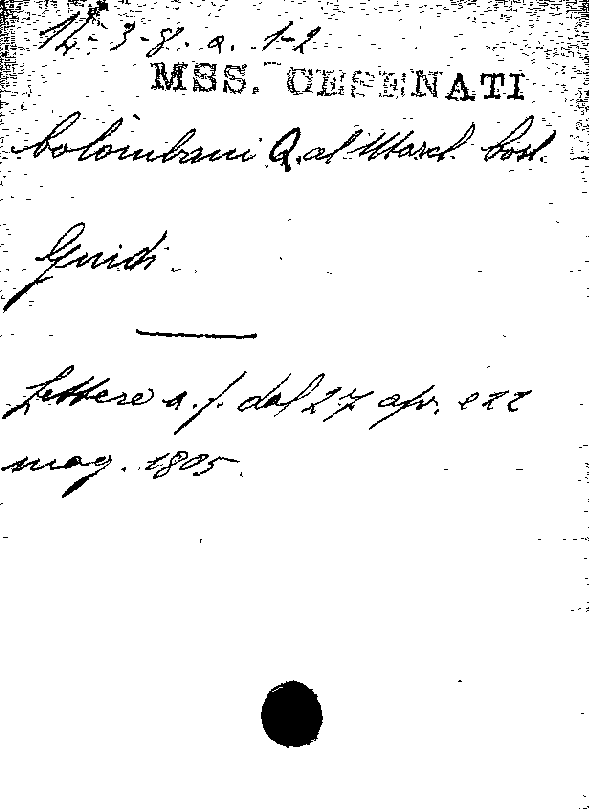 14-3-8. a. 1-2
MSS. CESENATI
Colombani Q. al March. Cost.
Guidi.
Lettere a. f. dal 27 apr. e 22
mag. 1805.